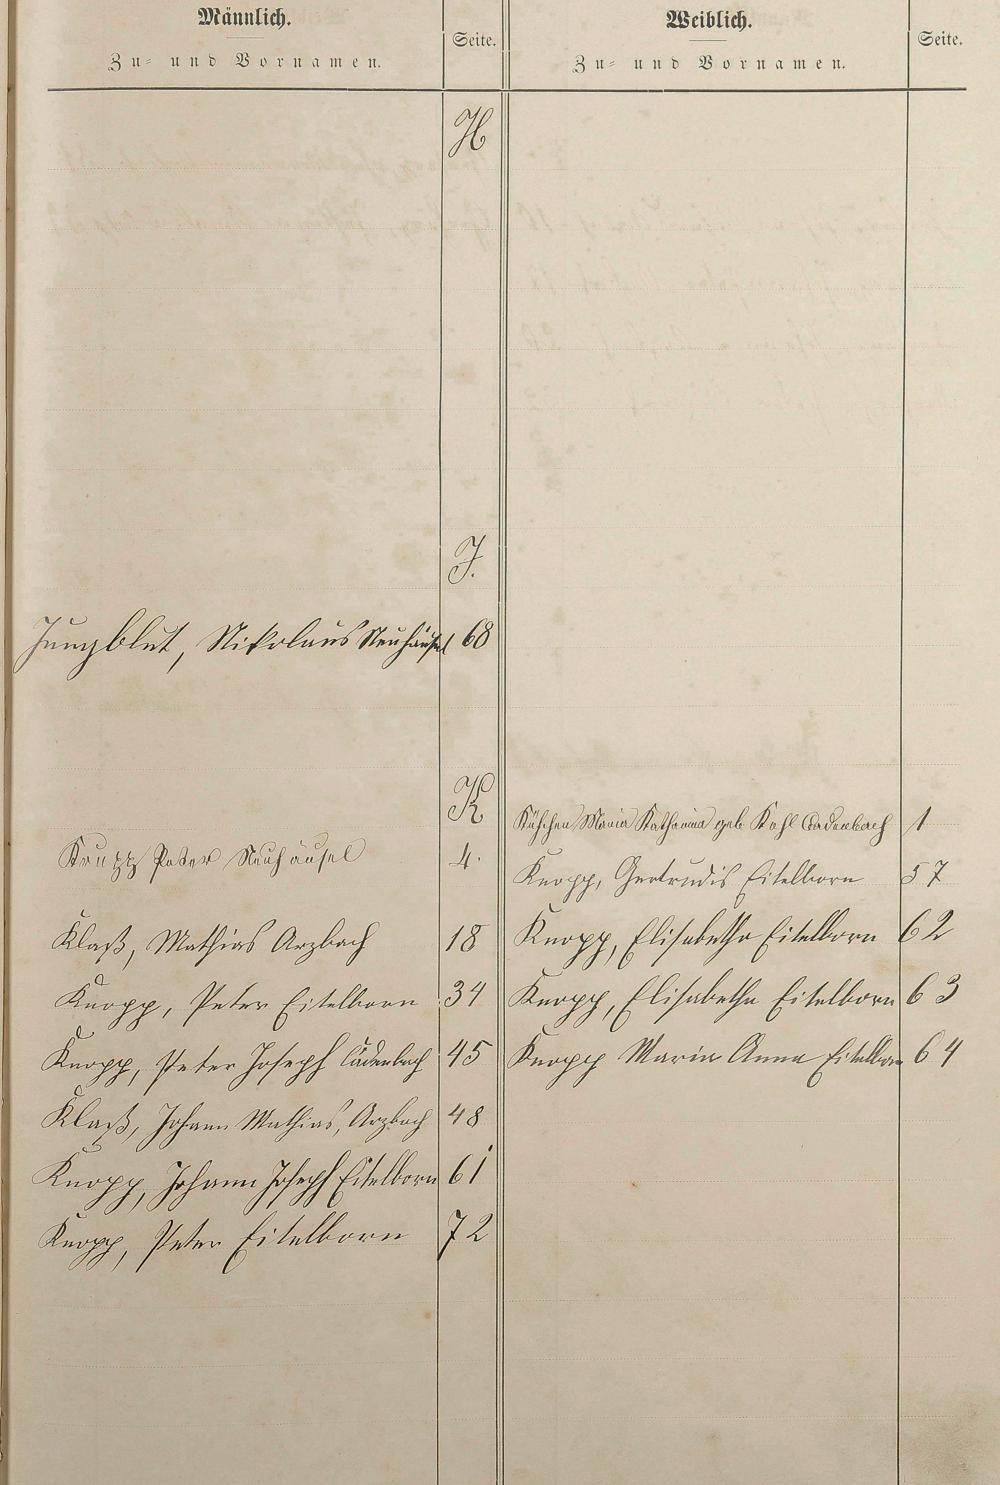 Männlich.
Zu- und Vornamen.
Seite.
Weiblich.
Zu- und Vornamen.
Seite.
H
J.
Jungblut, Nikolaus Neuhäusel 68
K
Krupp Peter Neuhäusel 4.
Klaß, Mathias Arzbach 18
Knopp, Peter Eitelborn 34
Knopp, Peter Joseph Cadenbach 45
Klaß, Johann Mathias, Arzbach 48
Knopp, Johann Joseph Eitelborn 61
Knopp, Peter Eitelborn 72
Maria Katharina geb Kohl Cadenbach 1
Knopp, Gertrudis Eitelborn 57
Knopp, Elisabetha Eitelborn 62
Knopp, Elisabetha Eitelborn 63
Knopp Maria Anna Eitelborn 64